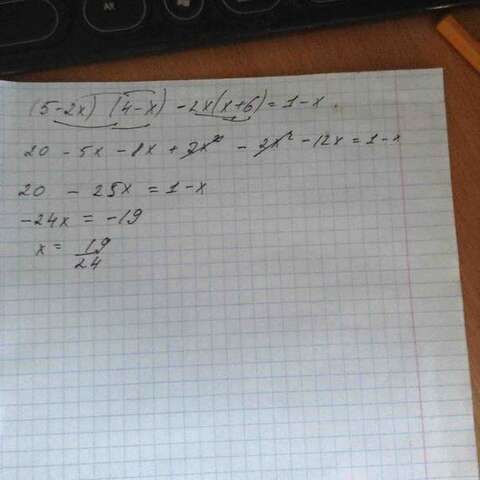 (5-2x) (4-x) -2x(x+6)=1-x.
20 -5x -8x +2x² - 2x² -12x=1-x
20 - 25x = 1-x
-24x = -19
x = 19/24